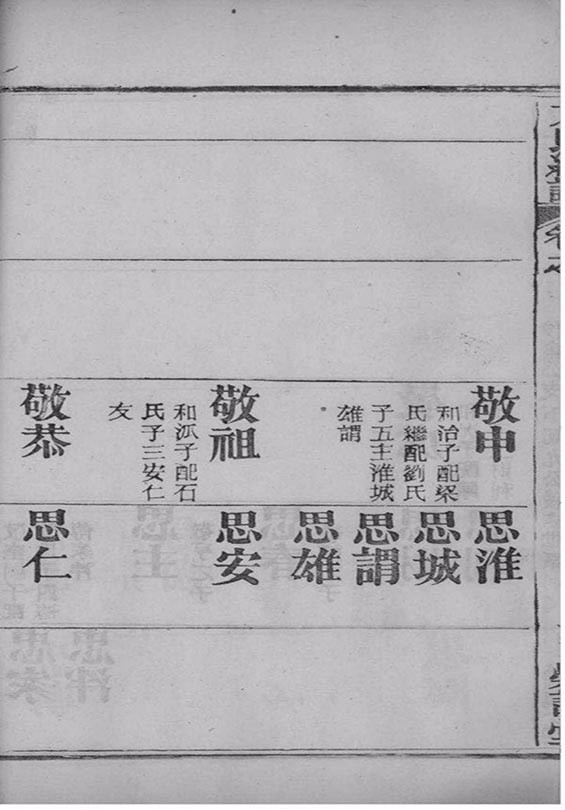 敬申
和治子配梁
氏繼配劉氏
子五主淮城
雄謂
敬祖
和派子配石
氏子三安仁
友
敬恭
思淮
思城
思謂
思雄
思安
思仁